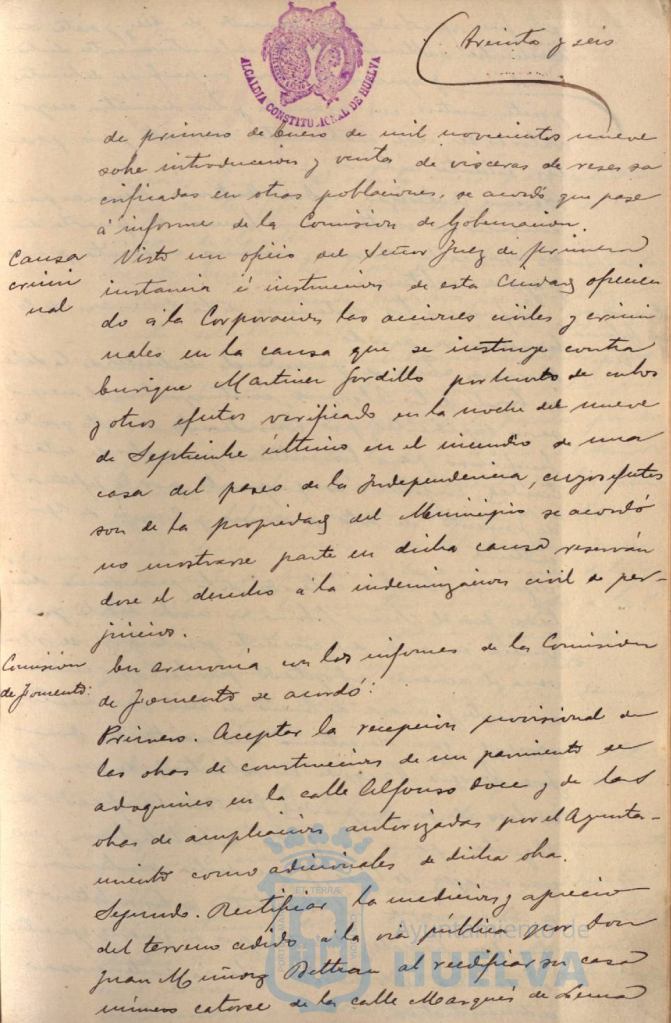 Treinta y seis
ALCALDIA CONSTITUCIONAL DE HUELVA
de primero de Enero de mil novecientos nueve
sobre introduccion y venta de visceras de reses sa
crificadas en otras poblaciones, se acordó que pase
á informe de la Comision de Gobernación.
Causa
crimi
nal
Visto un oficio del Señor Juez de primera
instancia é instruccion de esta Ciudad ofrecien
do á la Corporacion las acciones civiles y crimi
nales en la causa que se instruye contra
Enrique Martinez Gordillo por hurto de cubos
y otros efectos verificado en la noche del nueve
de Septiembre último en el incendio de una
casa del paseo de la Independencia, cuyos efectos
son de la propiedad del Municipio se acordó
no mostrarse parte en dicha causa reserván
dose el derecho á la indemnizacion civil de per-
juicios.
Comisión
de Fomento:
En armonía con los informes de la Comision
de Fomento se acordó:
Primero. Aceptar la recepcion provisional de
las obras de construccion de un pavimento de
adoquines en la calle Alfonso doce y de las
obras de ampliacion autorizadas por el Ayunta-
miento como adicionales de dicha obra.
Segundo. Rectificar la medicion y aprecio
del terreno cedido á la via pública por Don
Juan Muñoz Beltran al reedificar su casa
número catorce de la calle Marqués de
Ayuntamiento de
HUELVA